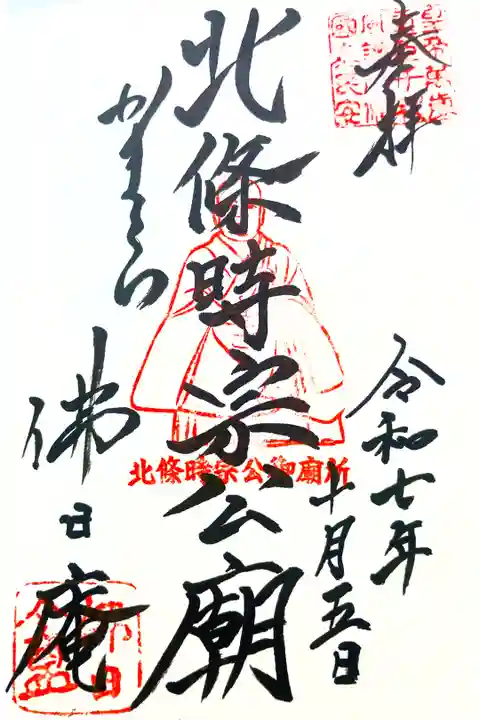 奉拝
令和七年
十月五日
北條時宗公廟
北條時宗公御廟所
かまくら
佛日庵